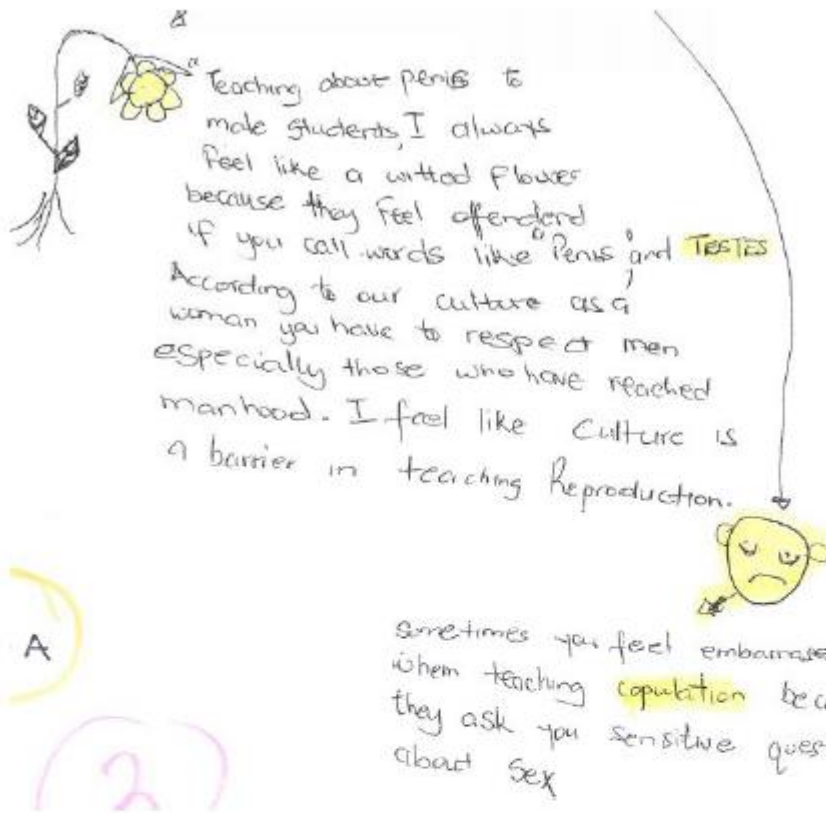 Teaching about penis to
male students, I always
feel like a witted flower
because they feel offenderd
if you call words like "Penis" and TESTES
According to our culture as a
woman you have to respect men
especially those who have reached
manhood. I feel like Culture is
a barrier in teaching Reproduction.
A
2
Sometimes you feel embarrase
when teaching copulation bec
they ask you sensitive ques
about sex